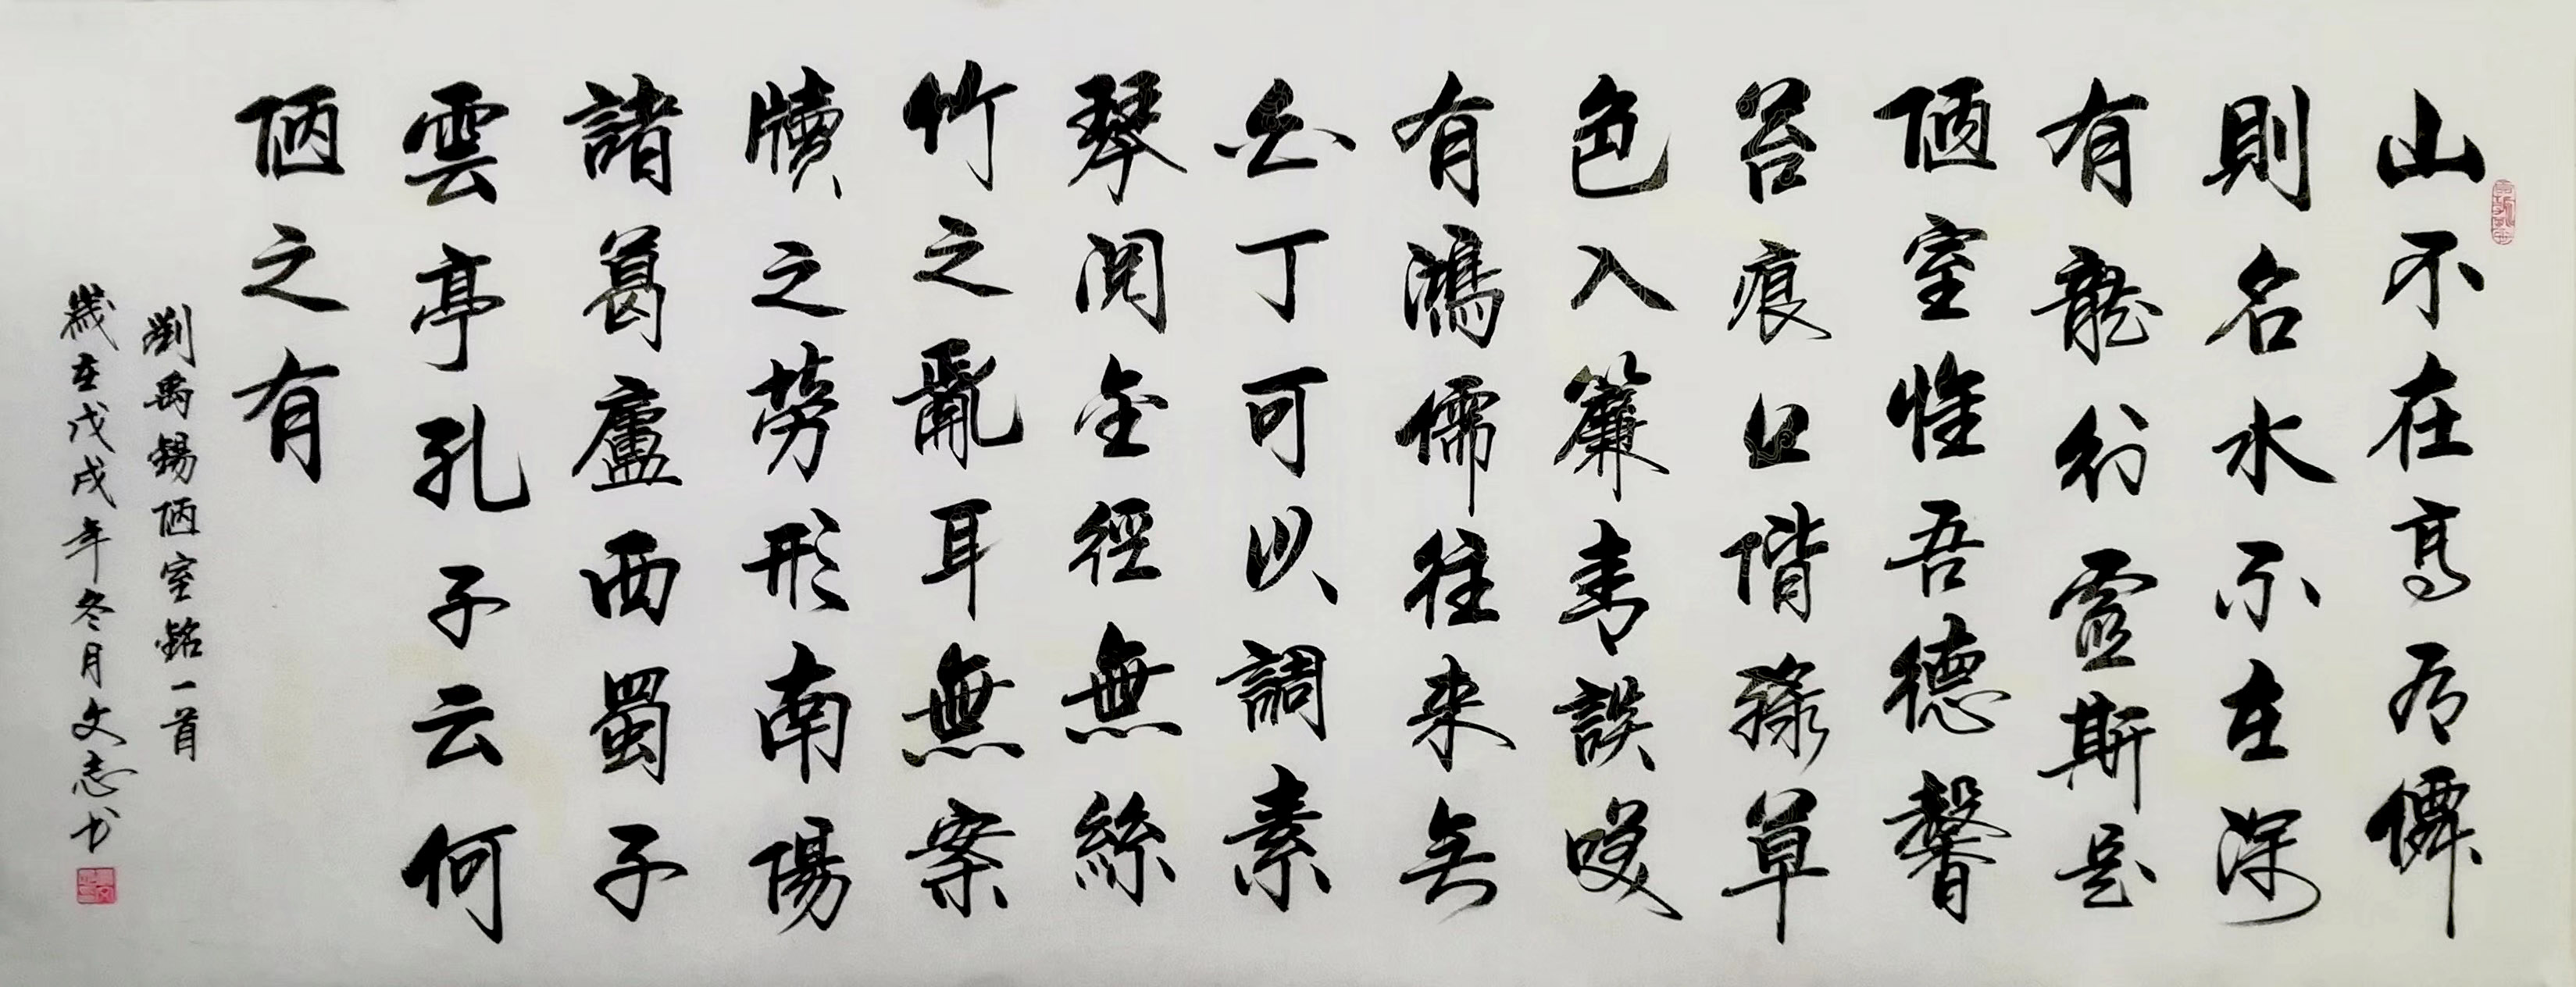 山不在高有僊
則名水不在深
有龍則靈斯是
陋室惟吾德馨
苔痕上階綠草
色入簾青談笑
有鴻儒往來無
白丁可以調素
琴閱金經無絲
竹之亂耳無案
牘之勞形南陽
諸葛廬西蜀子
雲亭孔子云何
陋之有
劉禹錫陋室銘一首
歲在戊戌年冬月文志书